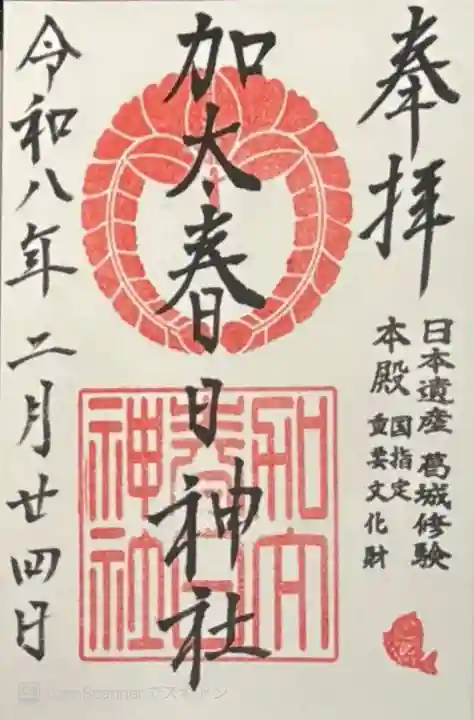 奉拝
日本遺産 葛城修験
本殿 国指定
重要文化財
加太春日神社
春日
神社
令和八年二月廿四日
CamScannerでスキャン